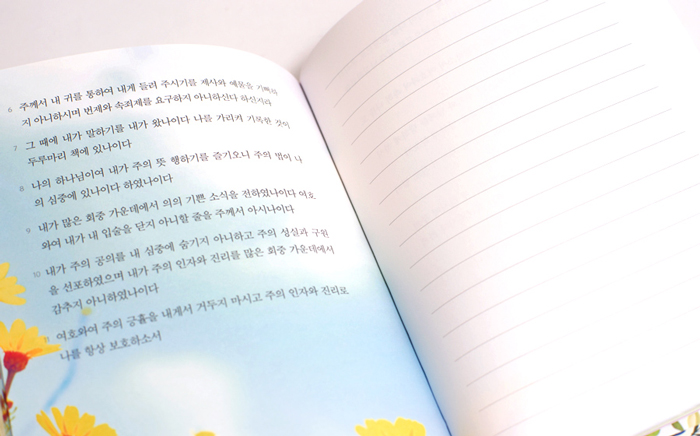 6 주께서 내 귀를 통하여 내게 들려 주시기를 제사와 예물을 기뻐하
지 아니하시며 번제와 속죄제를 요구하지 아니하신다 하신지라
7 그 때에 내가 말하기를 내가 왔나이다 나를 가리켜 기록한 것이
두루마리 책에 있나이다
8 나의 하나님이여 내가 주의 뜻 행하기를 즐기오니 주의 법이 나
의 심중에 있나이다 하였나이다
9 내가 많은 회중 가운데에서 의의 기쁜 소식을 전하였나이다 여호
와여 내가 내 입술을 닫지 아니할 줄을 주께서 아시나이다
10 내가 주의 공의를 내 심중에 숨기지 아니하고 주의 성실과 구원
을 선포하였으며 내가 주의 인자와 진리를 많은 회중 가운데에서
감추지 아니하였나이다
여호와여 주의 긍휼을 내게서 거두지 마시고 주의 인자와 진리로
나를 항상 보호하소서